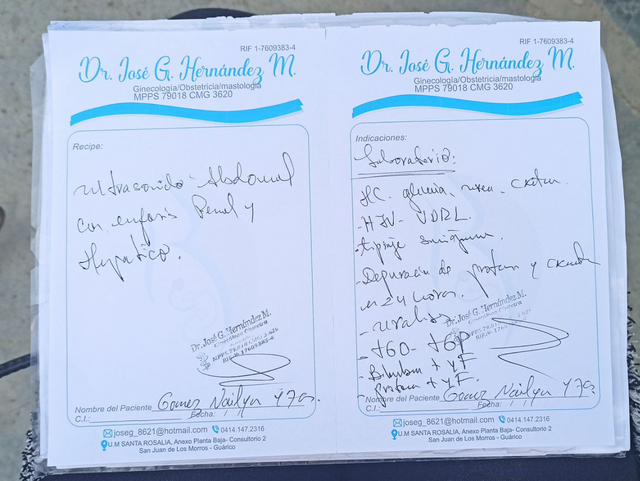 RIF 1-7609383-4
Dr. José G. Hernández M.
Ginecología/Obstetricia/mastología
MPPS 79018 CMG 3620
Recipe:
ultrasonido Abdominal
con enfasis Renal y
Hepatico.
Dr. José G. Hernández M.
Nombre del Paciente Gomez Nailyn
C.I.: Fecha: / /
joseg_8621@hotmail.com 0414.147.2316
U.M SANTA ROSALIA, Anexo Planta Baja- Consultorio 2
San Juan de Los Morros - Guárico
RIF 1-7609383-4
Dr. José G. Hernández M.
Ginecología/Obstetricia/mastología
MPPS 79018 CMG 3620
Indicaciones:
Laboratorio:
HC. glicemia, urea, creatin.
- HIV - VDRL.
- tipiaje sanguineo.
- Depuración de protein y
en 24 horas.
- uroanalisis
- TGO - TGP
- Bilirrubin t y F
- Protein t y F.
Dr. José G. Hernández M.
Nombre del Paciente Gomez Nailyn
C.I.: Fecha: / /
joseg_8621@hotmail.com 0414.147.2316
U.M SANTA ROSALIA, Anexo Planta Baja- Consultorio 2
San Juan de Los Morros - Guárico